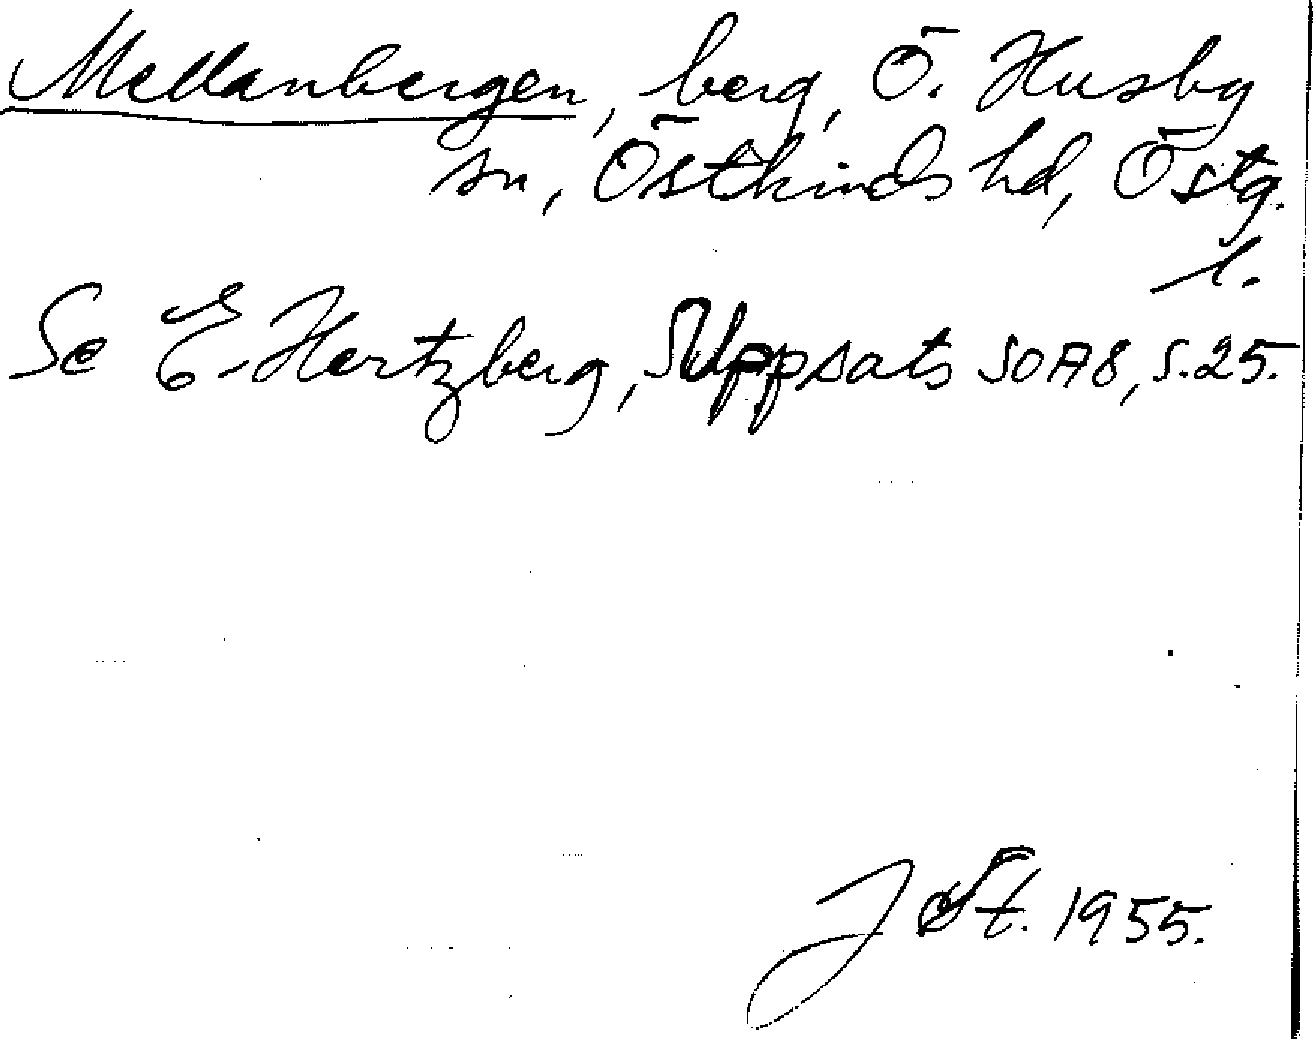 Mellanbergen, berg, Ö. Husby
sn, Östkinds hd, Östg.
l.
Se E. Hertzberg, Uppsats SOA8, s.25.
J St. 1955.